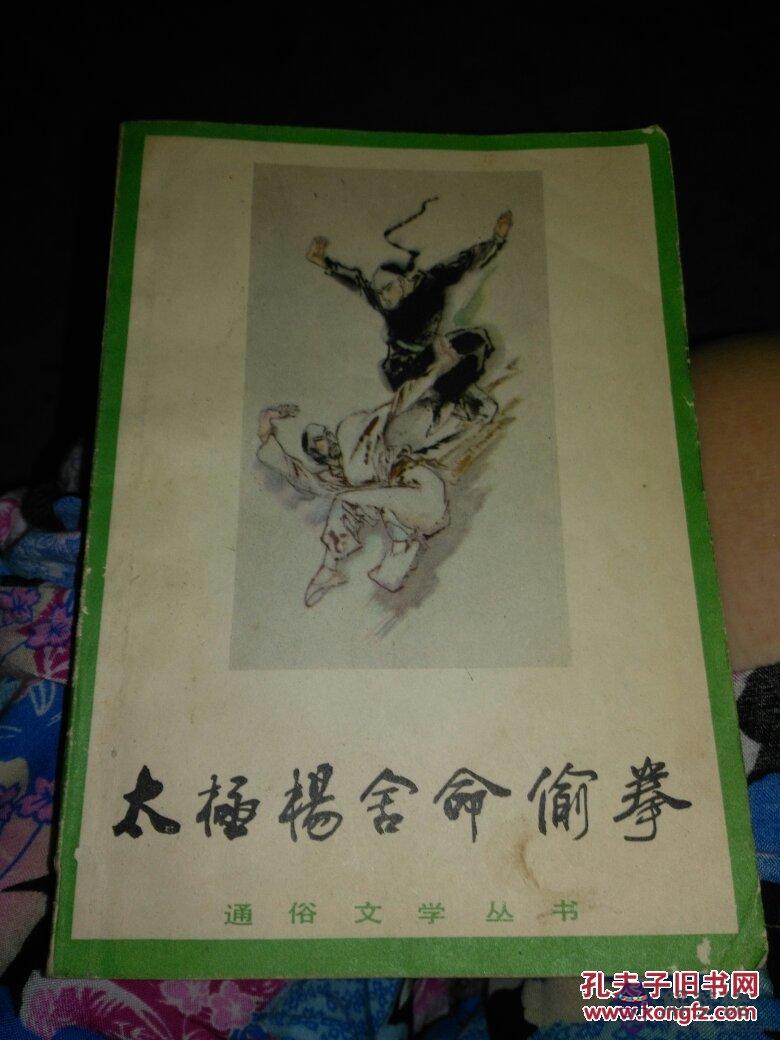 太極楊舍命偷拳
通俗文学丛书
孔夫子旧书网
www.kongfz.com